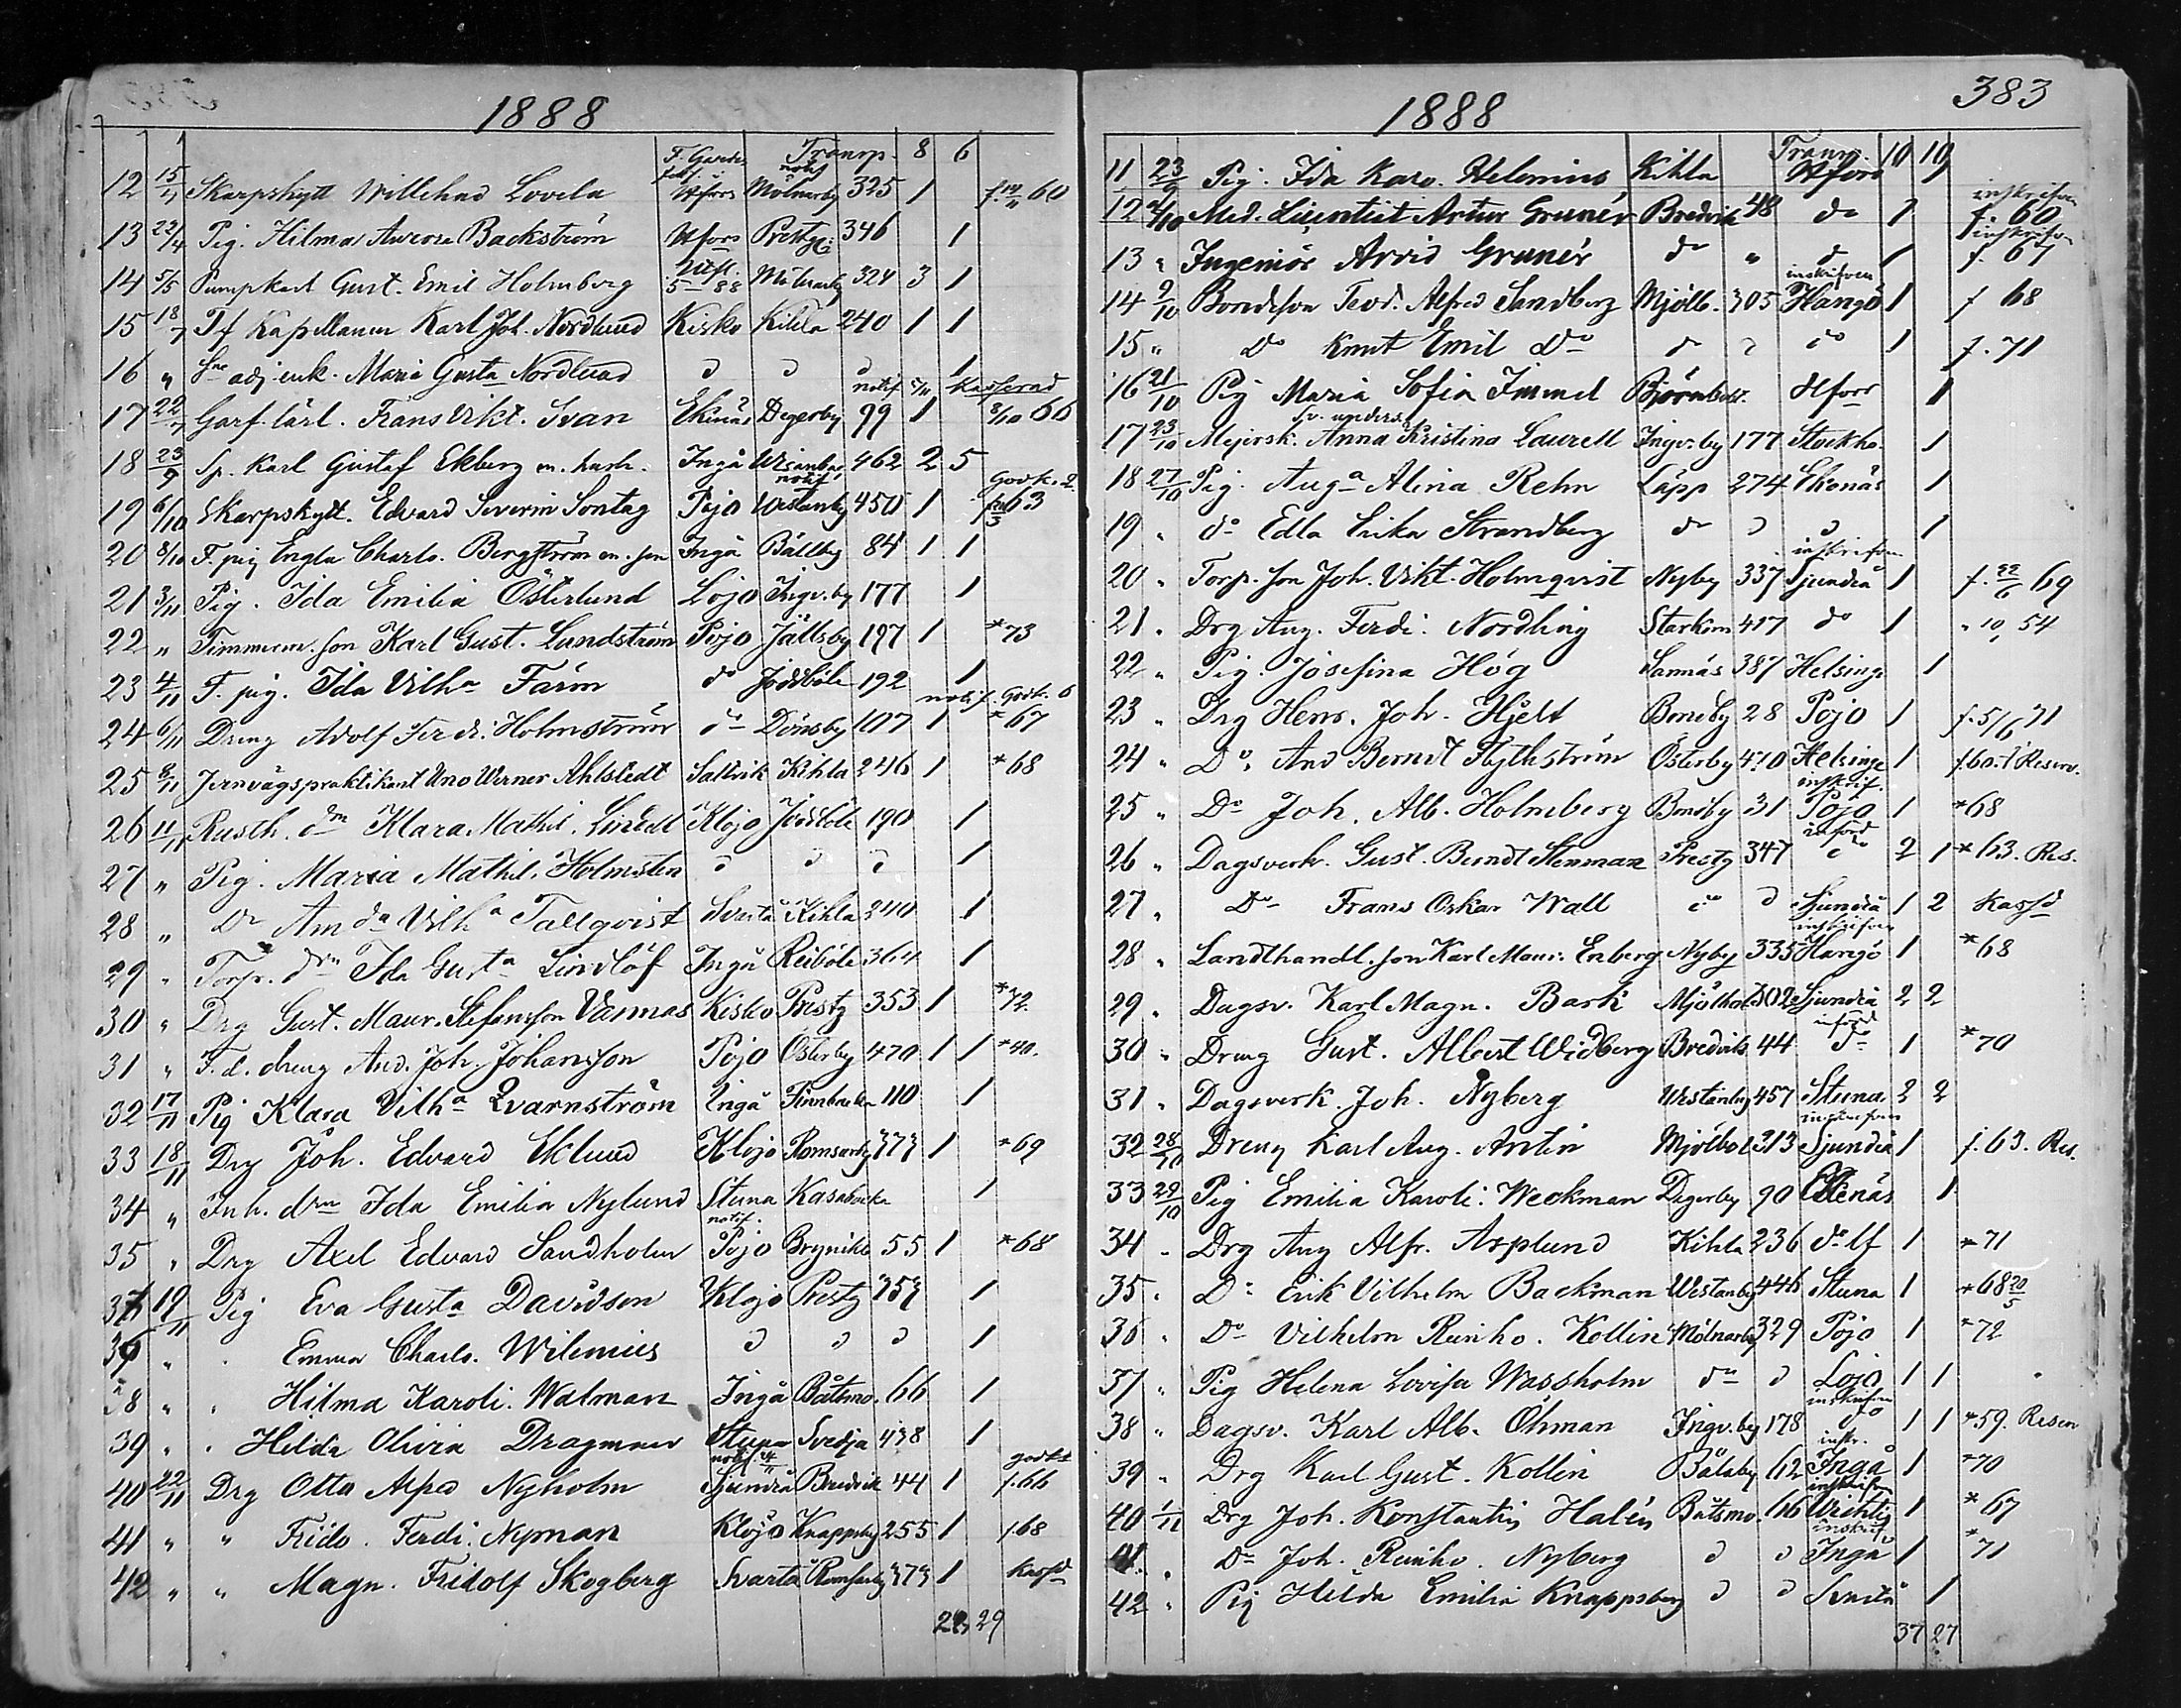 1888
Transp. 8 6
12 15/4 Skarpskytt Willehad Lovela Hfors Mölnarby 325 1 60
13 22/4 Pig. Hilma Aurora Backström Hfors Prestg. 346 1
14 5/5 Pumpkarl Gust. Emil Holmberg Mölnarby 324 3 1
15 18/7 Tf Kapellanen Karl Joh. Nordlund Kisko Kihla 240 1 1
16 " adj. enk. Maria Gusta Nordlund d d d 1
notif kasserad
17 22/7 Garf. lärl. Frans Vikt. Svan Ekenäs Degerby 99 1 8/10 66
18 23/9 Sp. Karl Gustaf Ekberg m. hust. Ingå 462 2 5
notif godk. 2
19 6/10 Skarpskytt. Edvard Severin Sontag Pojo Westanby 450 1 63
20 8/10 F. pig Engla Charlo. Bergström m. son Ingå Bällby 84 1 1
21 3/11 Pig. Ida Emilia Österlund Lojo Ingv.by 177 1
22 " Timmerm. son Karl Gust. Lundström Pojo Jällsby 197 1 *73
23 4/11 F. pig. Ida Vilha Färm do Joddböle 192 1
notif. godk. 6
24 6/11 Dreng Adolf Ferdi. Holmström do Dönsby 107 1 *67
25 8/11 Jernvägspraktikant Uno Werner Ahlstedt Saltvik Kihla 246 1 *68
26 11/11 Rusth. dm Klara Mathil. Lindell Klojo Joddböle 190 1
27 " Pig. Maria Mathil. Holmsten d d d 1
28 " Do Amda Vilha Tallqvist Svartå Kihla 240 1
29 " Torp. drn Ida Gusta Lindlöf Ingå Reiböle 364 1
30 " Drg Gust. Maur. Stefansson Vannas Kisko Prestg 353 1 *72
31 " F. d. dreng And. Joh. Johansson Pojo Österby 470 1 1 *40.
32 17/11 Pig Klara Vilha Qvarnström Ingå Finnbacka 110 1
33 18/11 Drg Joh. Edvard Eklund Klojo Romsarby 373 1 *69
34 " Inh. drn Ida Emilia Nylund Stuna Kasabacka 1
notif.
35 " Drg Axel Edvard Sandholm Pojo Brynikö 55 1 *68
19/11 Pig Eva Gusta Davidson Klojo Prestg 353 1
" " Emma Charlo. Wilenius d d d 1
38 " " Hilma Karoli. Walman Ingå Båtsmo. 66 1
39 " " Hilda Olivia Dragman Stuna Svedja 438 1
notif. godkt
40 22/11 Drg Otto Alfred Nyholm Sjundeå Bredvik 44 1 f. 66
41 " " Frido. Ferdi. Nyman Klojo Knappsby 255 1 f. 68
42 " " Magn. Fridolf Skogberg Svartå Romsarby 373 1 kassd
29
1888 383
Transp. 10 19
11 23/9 Pig. Ida Karo. Helenius Kihla Hfors 1
inskrifven
12 2/10 Med. Licentiat Artur Grunér Bredvik 48 do 1 f. 60
inskrifven
13 " Ingeniör Arvid Grunér do " d 1 f. 67
inskrifven
14 9/10 Bondeson Teod. Alfred Sandberg Mjölb. 305 Hangö 1 f 68
15 " do Knut Emil do d d do 1 f. 71
16 21/10 Pig Maria Sofia Immel Björnböl. Hfors 1
Sv. unders.
17 23/10 Mejersk. Anna Kristina Laurell Ingv.by 177 Stockho. 1
18 27/10 Pig. Auga Alina Rehn Läpp 274 Ekenäs 1
19 " do Edla Erika Strandberg do d d 1
inskrifven
20 " Torp. son Joh. Vikt. Holmqvist Nyby 337 Sjundeå 1 f. 22/6 69
21 " Drg Aug. Ferdi. Nordling Starkom 417 do 1 " 10, 54
22 " Pig. Josefina Hög Sannäs 387 Helsinge 1
23 " Drg Henr. Joh. Hjelt Bondby 28 Pojo 1 f. 5/6 71
24 " Do And Berndt Flythström Österby 470 Helsinge 1 f. 60.1 Reserv.
inskrif.
25 " Do Joh. Alb. Holmberg Bondby 31 Pojo 1 *68
införd
26 " Dagsverk. Gust. Berndt Stenman Prestg 347 do 2 1 *63. Res.
27 " Do Frans Oskar Wall do d Sjundeå 1 2 Kassd
inskrifven
28 " Landthandl. son Karl Maur. Enberg Nyby 335 Hangö 1 *68
29 " Dagsv. Karl Magn. Bark Mjölbol 302 Sjundeå 2 2
införd
30 " Dreng Gust. Albert Widberg Bredvik 44 do 1 *70
31 " Dagsverk. Joh. Nyberg Westanby 457 Stuna 2 2
inskrifven
32 28/10 Dreng Karl Aug. Antin Mjölbol 313 Sjundeå 1 f. 63. Res.
33 29/10 Pig Emilia Karoli. Weckman Degerby 90 Ekenäs 1
34 " Drg Aug Alfr. Asplund Kihla 236 do lf 1 *71
35 " Do Erik Vilhelm Backman Westanby 446 Stuna 1 *68 20/5
36 " Do Vilhelm Reinho. Kollin Mölnarby 329 Pojo 1 *72
37 " Pig Helena Lovisa Wassholm do d Lojo 1 1
inskrifven
38 " Dagsv. Karl Alb. Öhman Ingv.by 178 do 1 1 *59. Reserv
inskr.
39 " Drg Karl Gust. Kollin Bålaby 62 Ingå 1 *70
inskrifven
40 1/11 Drg Joh. Konstantin Halén Båtsmo. 66 Wichtis 1 *67
inskrif.
41 " Do Joh. Reinho. Nyberg d d Ingå 1 *71
42 " Pig Hilda Emilia Knappsberg d d Svartå 1
37 27